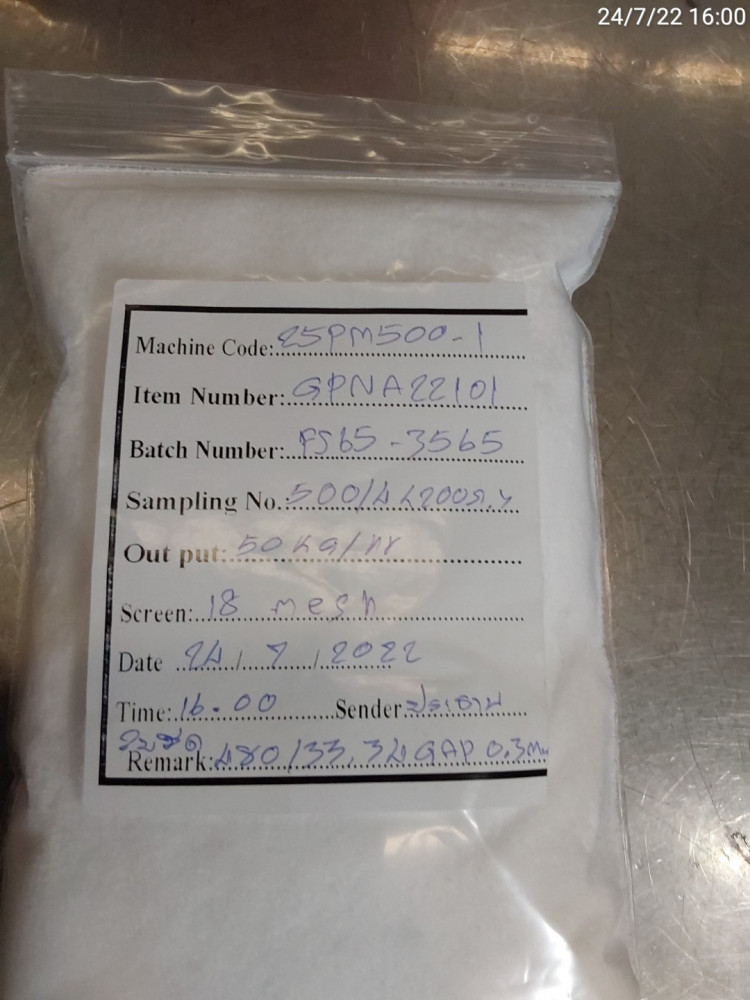 24/7/22 16:00
Machine Code: 25PM500-1
Item Number: GPNA22101
Batch Number: PS65-3565
Sampling No. 500/4
Out put: 50 kg/hr
Screen: 18 mesh
Date 24/7/2022
Time: 16.00 Sender ประธาน
ใบชุด
Remark: 480/33.34 GAP 0.3 mm